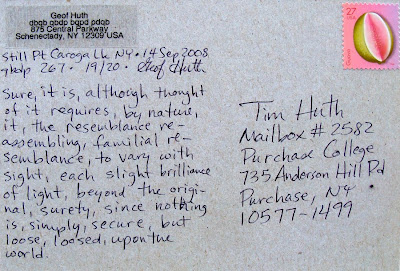 Geof Huth
dbqb qbdp bqpd pdqb
875 Central Parkway
Schenectady, NY 12309 USA
Still Pt Caroga Lk NY · 14 Sep 2008
267 · 19/20 · Geof Huth
Sure, it is, although thought
of it requires, by nature,
it, the resemblance re-
assembling, familial re-
semblance, to vary with
sight, each slight brilliance
of light, beyond the origi-
nal, surety, since nothing
is, simply, secure, but
loose, loosed, upon the
world.
27
Tim Huth
Mailbox # 2582
Purchase College
735 Anderson Hill Rd
Purchase, NY
10577-1499